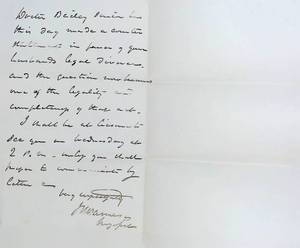 Doctor Bailey Price has
this day made a counter
statement in favor of your
husbands legal divorce
and the question now becomes
one of the legality and
completeness of that act.
I shall be at leisure to
see you on Wednesday at
2 P.M. unless you shall
prefer to communicate by
letter
Very